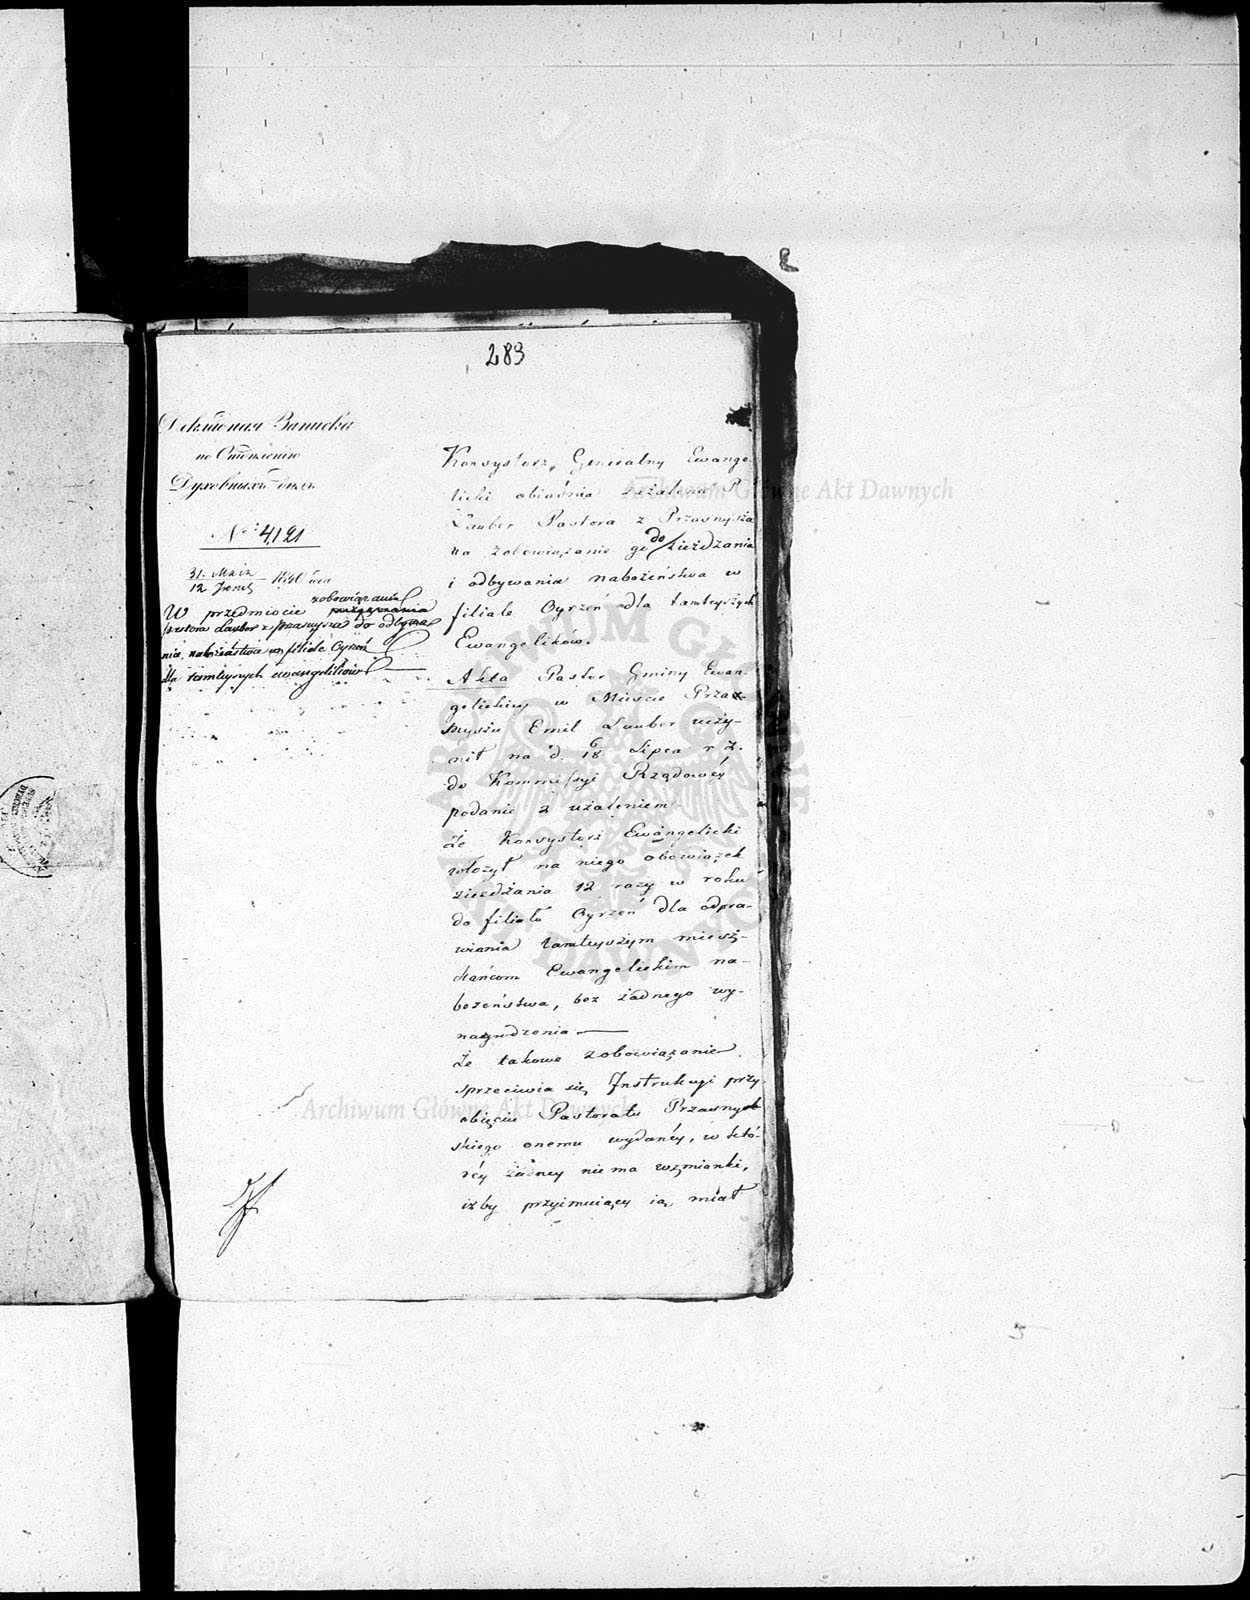 283
Декладная Записка
по Отдѣленію
Духовныхъ дѣлъ
№ 4,121
31. Maia
12 1840
zobowiązania
W przedmiocie
Pastora Lauber z Przasnysza do odbywa-
nia nabożeństwa w filiale Cyrzeń
dla tamteyszych ewangelików
Konsystorz Generalny Ewange-
licki obiaśnia zażalenie P.
Lauber Pastora z Przasnysza
na zobowiązanie go do zieżdzania
i odbywania nabożeństwa w
filiale Cyrzeń dla tamteyszych
Ewangelików.
Akta Pastor Gminy Ewan-
gelickiey w Mieście Prza-
snyszu Emil Lauber uczy-
nił na d. 6/18 Lipca r z.
do Kommissyi Rządowéy
podanie z użaleniem
Że Konsystorz Ewangelicki
włożył na niego obowiązek
zieżdżania 12 razy w roku
do filiału Cyrzeń dla odpra-
wiania tamteyszym miesz-
kańcom Ewangelickim na-
bożeństwa, bez żadnego wy-
nagrodzenia
Że takowe zobowiązanie
sprzeciwia się Instrukcyi przy
obięciu Pastoratu Przasnysk
skiego onemu wydanéy, w któ-
réy żadney nie ma wzmianki,
iżby przyimuiący ią miał
Archiwum Główne Akt Dawnych
Archiwum Główne Akt Dawnych
ARCHIWUM GŁÓWNE AKT DAWNYCH